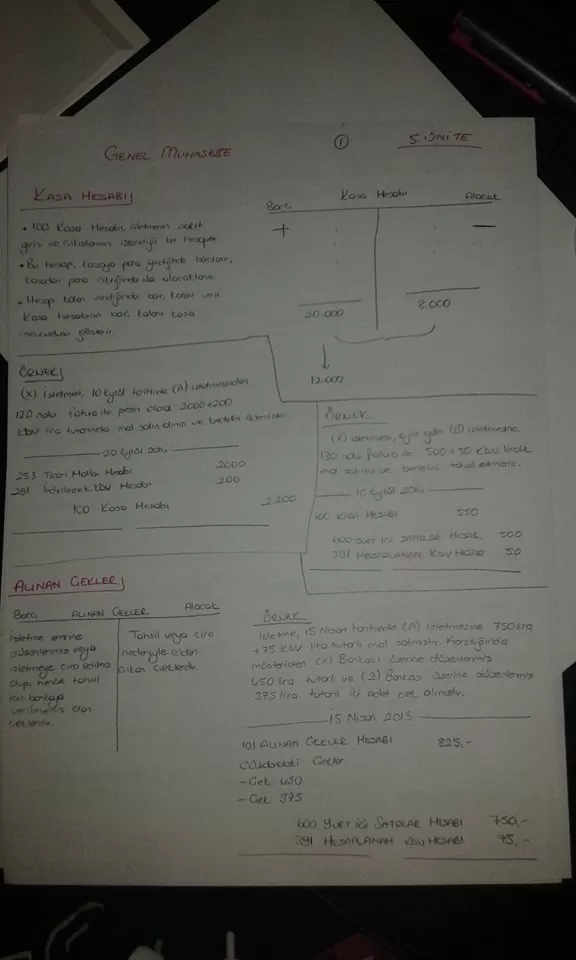 GENEL MUHASEBE
1
5. ÜNİTE
KASA HESABI
• 100 Kasa Hesabı, işletmenin nakit
giriş ve çıkışlarının izlendiği bir hesaptır.
• Bu hesap, kasaya para girdiğinde borçlanır,
kasadan para çıktığında da alacaklanır.
• Hesap kalan verdiğinde borç kalanı verir.
Kasa hesabının borç kalanı kasa
mevcudunu gösterir.
Borç Kasa Hesabı Alacak
+ −
20.000 8.000
12.000
ÖRNEK
(X) İşletmesi, 10 Eylül tarihinde (A) işletmesinden
120 nolu fatura ile peşin olarak 2000+200
KDV lira tutarında mal satın almış ve bedelini ödemiştir.
Eylül
253 Ticari Mallar Hesabı 2000
291 İndirilecek KDV Hesabı 200
100 Kasa Hesabı 2.200
ÖRNEK
(X) işletmesi, aynı gün işletmesine
130 nolu fatura ile 500+50 KDV liralık
mal satmış ve bedelini tahsil etmiştir.
10 Eylül
100 KASA HESABI 550
600 YURT İÇİ SATIŞLAR HESAB. 500
391 HESAPLANAN KDV HESABI 50
ALINAN ÇEKLER
Borç ALINAN ÇEKLER Alacak
İşletme emrine
düzenlenmiş veya
işletmeye ciro edilmiş
olup, henüz tahsil
için bankaya
verilmemiş olan
çeklerdir.
Tahsil veya ciro
nedeniyle elden
çıkan çeklerdir.
ÖRNEK
İşletme, 15 Nisan tarihinde (A) işletmesine 750 lira
+75 KDV lira tutarlı mal satmıştır. Karşılığında
müşteriden (X) Bankası üzerine düzenlenmiş
450 lira tutarlı ve (Z) Bankası üzerine düzenlenmiş
375 lira tutarlı iki adet çek almıştır.
15 Nisan 2015
101 ALINAN ÇEKLER HESABI 825,-
Cüzdandaki Çekler
- Çek 450
- Çek 375
600 YURT İÇİ SATIŞLAR HESABI 750,-
391 HESAPLANAN KDV HESABI 75,-